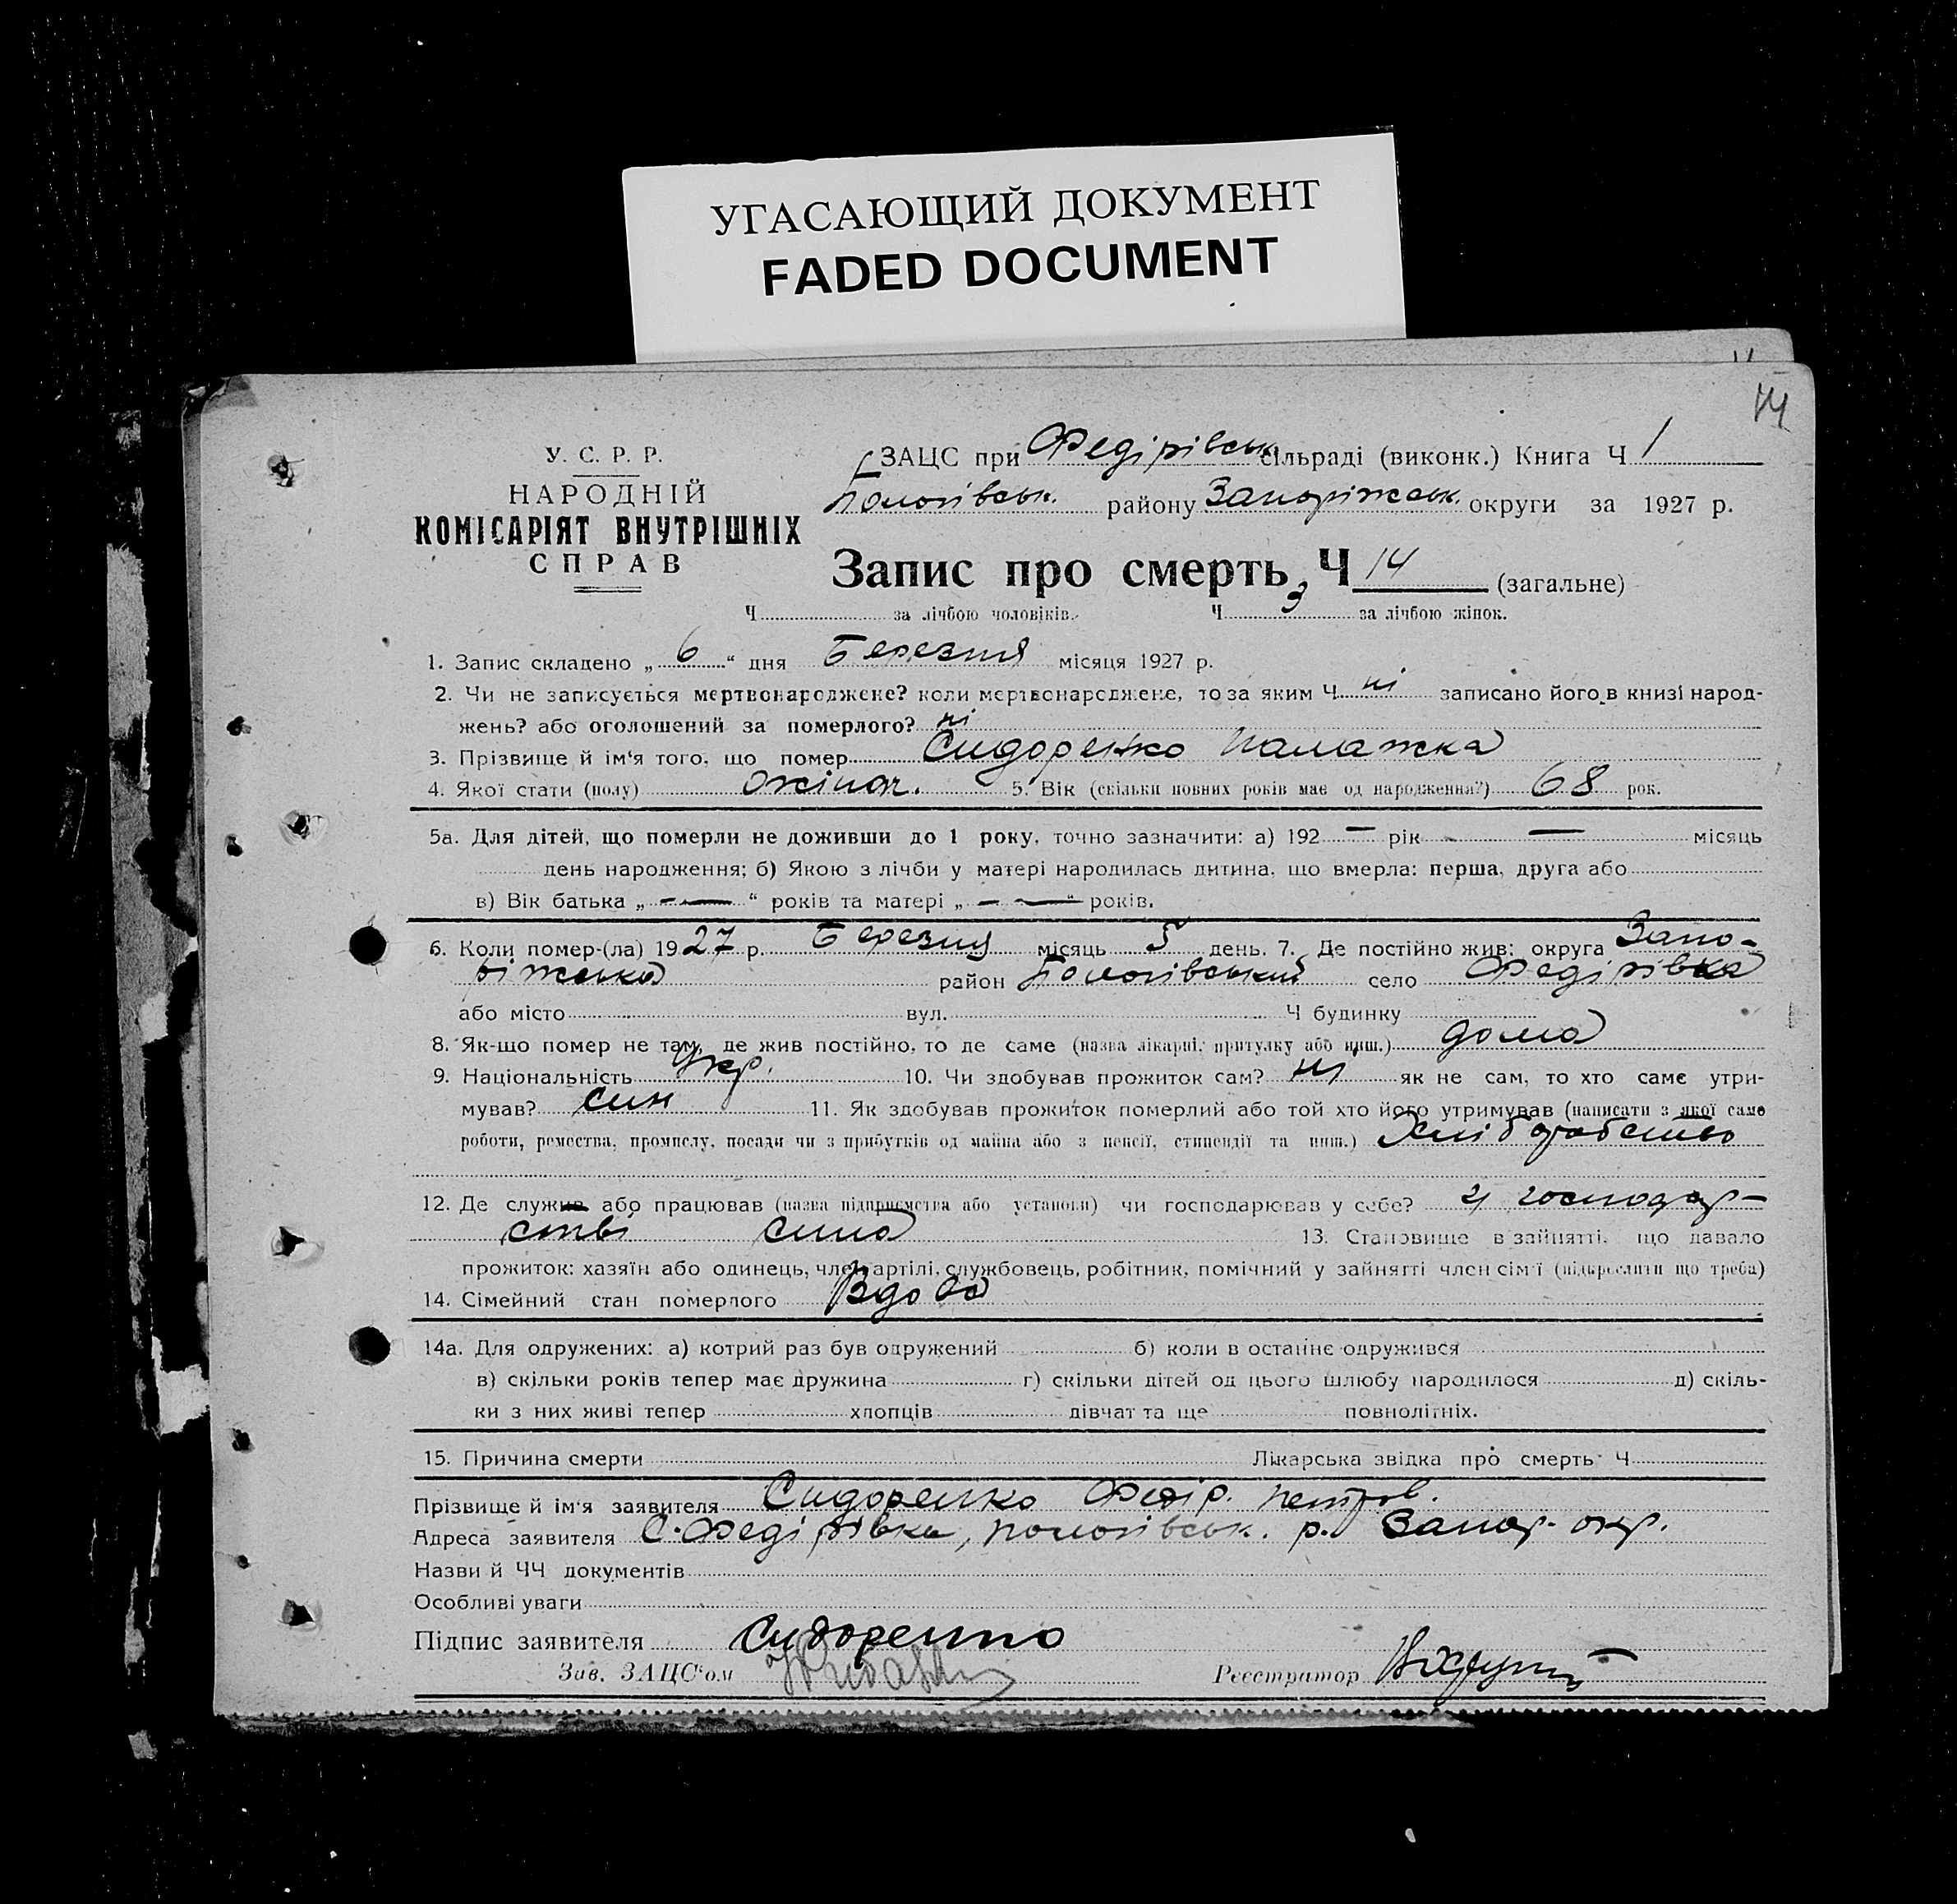 УГАСАЮЩИЙ ДОКУМЕНТ
FADED DOCUMENT
14
У. С. Р. Р.
НАРОДНІЙ
КОМІСАРІЯТ ВНУТРІШНІХ
СПРАВ
ЗАЦС при Федірівськ. сільраді (виконк.) Книга Ч 1
Пологівськ. району Запоріжськ. округи за 1927 р.
Запис про смерть, Ч 14 (загальне)
Ч за лічбою чоловіків. Ч 3 за лічбою жінок.
1. Запис складено „ 6 “ дня Березня місяця 1927 р.
2. Чи не записується мертвонароджене? коли мертвонароджене, то за яким Ч ні записано його в книзі народ-
жень? або оголошений за померлого? ні
3. Прізвище й ім'я того, що помер Сидоренко Палажка
4. Якої стати (полу) жіноч. 5. Вік (скільки повних років має од народження?) 68 рок.
5а. Для дітей, що померли не доживши до 1 року, точно зазначити: а) 192 — рік — місяць
день народження; б) Якою з лічби у матері народилась дитина, що вмерла: перша, друга або
в) Вік батька „ — “ років та матері „ — “ років.
6. Коли помер-(ла) 1927 р. Березня місяць 5 день. 7. Де постійно жив: округа Запо-
ріжська район Пологівський село Федірівка
або місто вул. Ч будинку
8. Як-що помер не там, де жив постійно, то де саме (назва лікарні, притулку або инш.) дома
9. Національність Укр. 10. Чи здобував прожиток сам? ні як не сам, то хто саме утри-
мував? син 11. Як здобував прожиток померлий або той хто його утримував (написати з якої саме
роботи, ремества, промислу, посади чи з прибутків од майна або з пенсії, стипендії та инш.) Хліборобство
12. Де служив або працював (назва підприємства або установи) чи господарював у себе? у господар-
стві сина 13. Становище в зайнятті, що давало
прожиток: хазяїн або одинець, член артілі, службовець, робітник, помічний у зайнятті член сім'ї (підкреслити що треба)
14. Сімейний стан померлого Вдова
14а. Для одружених: а) котрий раз був одружений б) коли в останнє одружився
в) скільки років тепер має дружина г) скільки дітей од цього шлюбу народилося д) скіль-
ки з них живі тепер хлопців дівчат та ще повнолітніх.
15. Причина смерти Лікарська звідка про смерть Ч
Прізвище й ім'я заявителя Сидоренко Федір. Петров.
Адреса заявителя С. Федірівка, Пологівськ. р. Запор. окр.
Назви й ЧЧ документів
Особливі уваги
Підпис заявителя Сидоренко
Зав. ЗАЦС'ом Реєстратор